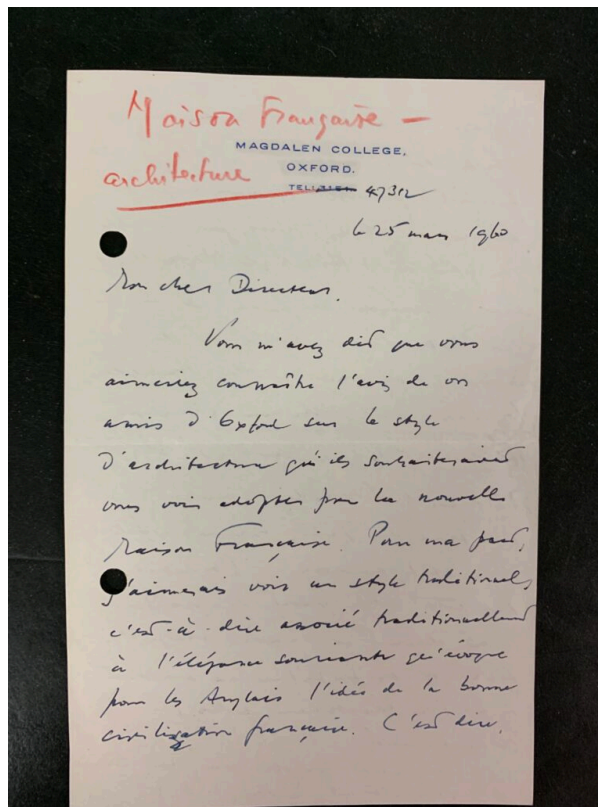 Maison Française –
architecture
MAGDALEN COLLEGE,
OXFORD.
TEL. 47312
le 25 mars 1960
Mon cher Directeur.
Vous m'avez dit que vous
aimeriez connaître l'avis de vos
amis d'Oxford sur le style
d'architecture qu'ils souhaiteraient
vous voir adopter pour la nouvelle
Maison Française. Pour ma part,
j'aimerais voir un style traditionnel,
c'est-à-dire associé traditionnellement
à l'élégance souriante qu'évoque
pour les Anglais l'idée de la bonne
civilisation française. C'est dire,